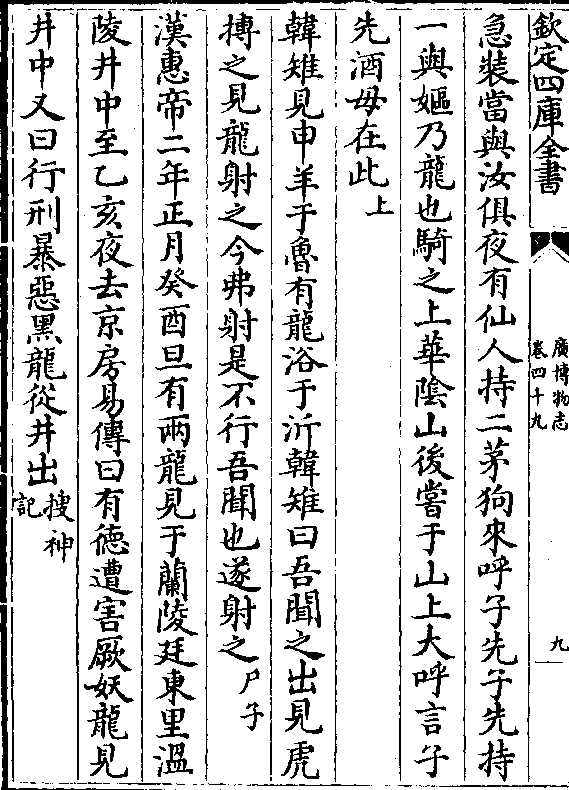 欽定四庫全書
廣博物志
卷四十九
九
急裝當與汝俱夜有仙人持二茅狗來呼子先子先持
一與嫗乃龍也騎之上華隂山後嘗于山上大呼言子
先酒母在此上
韓雉見申羊于魯有龍浴于沂韓雉曰吾聞之出見虎
搏之見龍射之今弗射是不行吾聞也遂射之尸子
漢惠帝二年正月癸酉旦有兩龍見于蘭陵廷東里溫
陵井中至乙亥夜去京房易傳曰有德遭害厥妖龍見
井中又曰行刑暴惡黑龍從井出搜神記